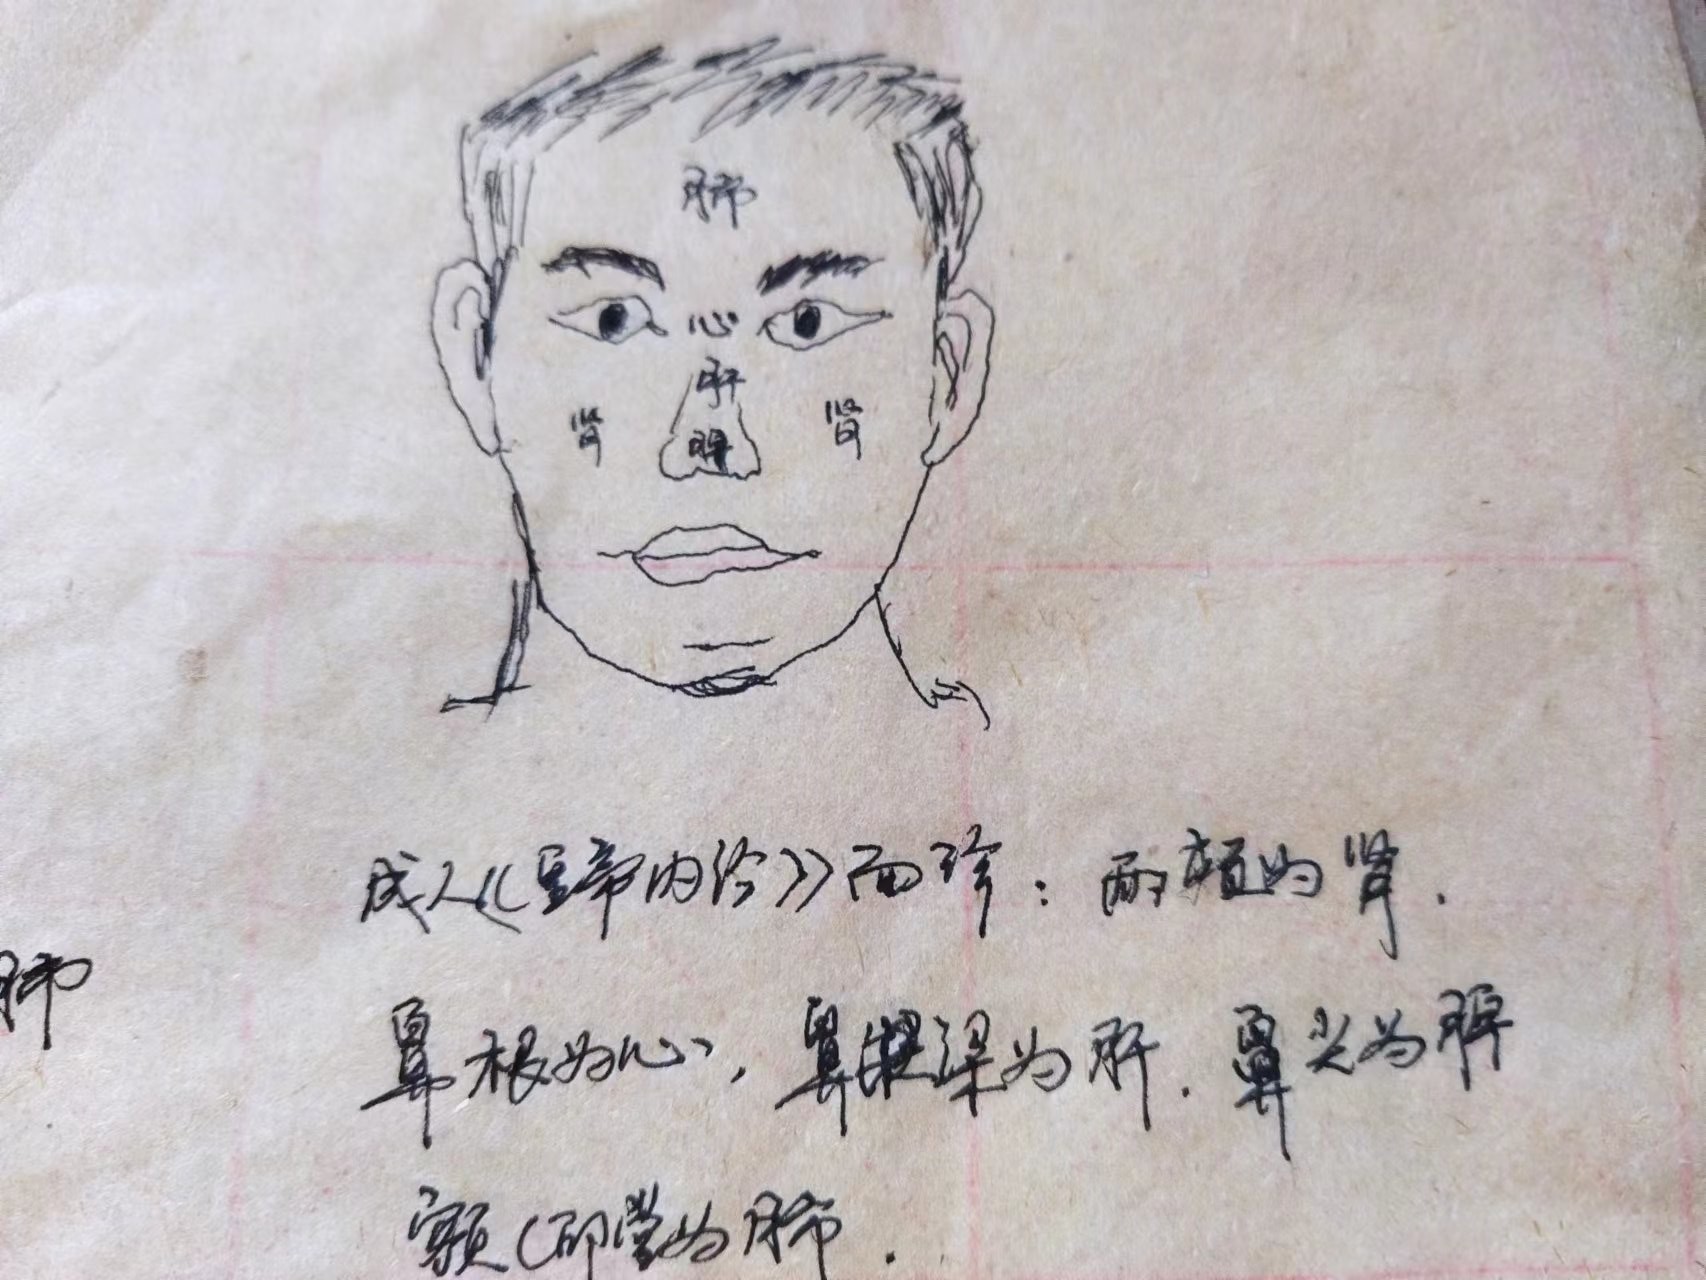 肺
心
肝
肾 脾 肾
成人《皇帝内经》面珍：两颊为肾．
肺
鼻根为心，鼻梁为肝．鼻头为脾
额（印堂为肺．